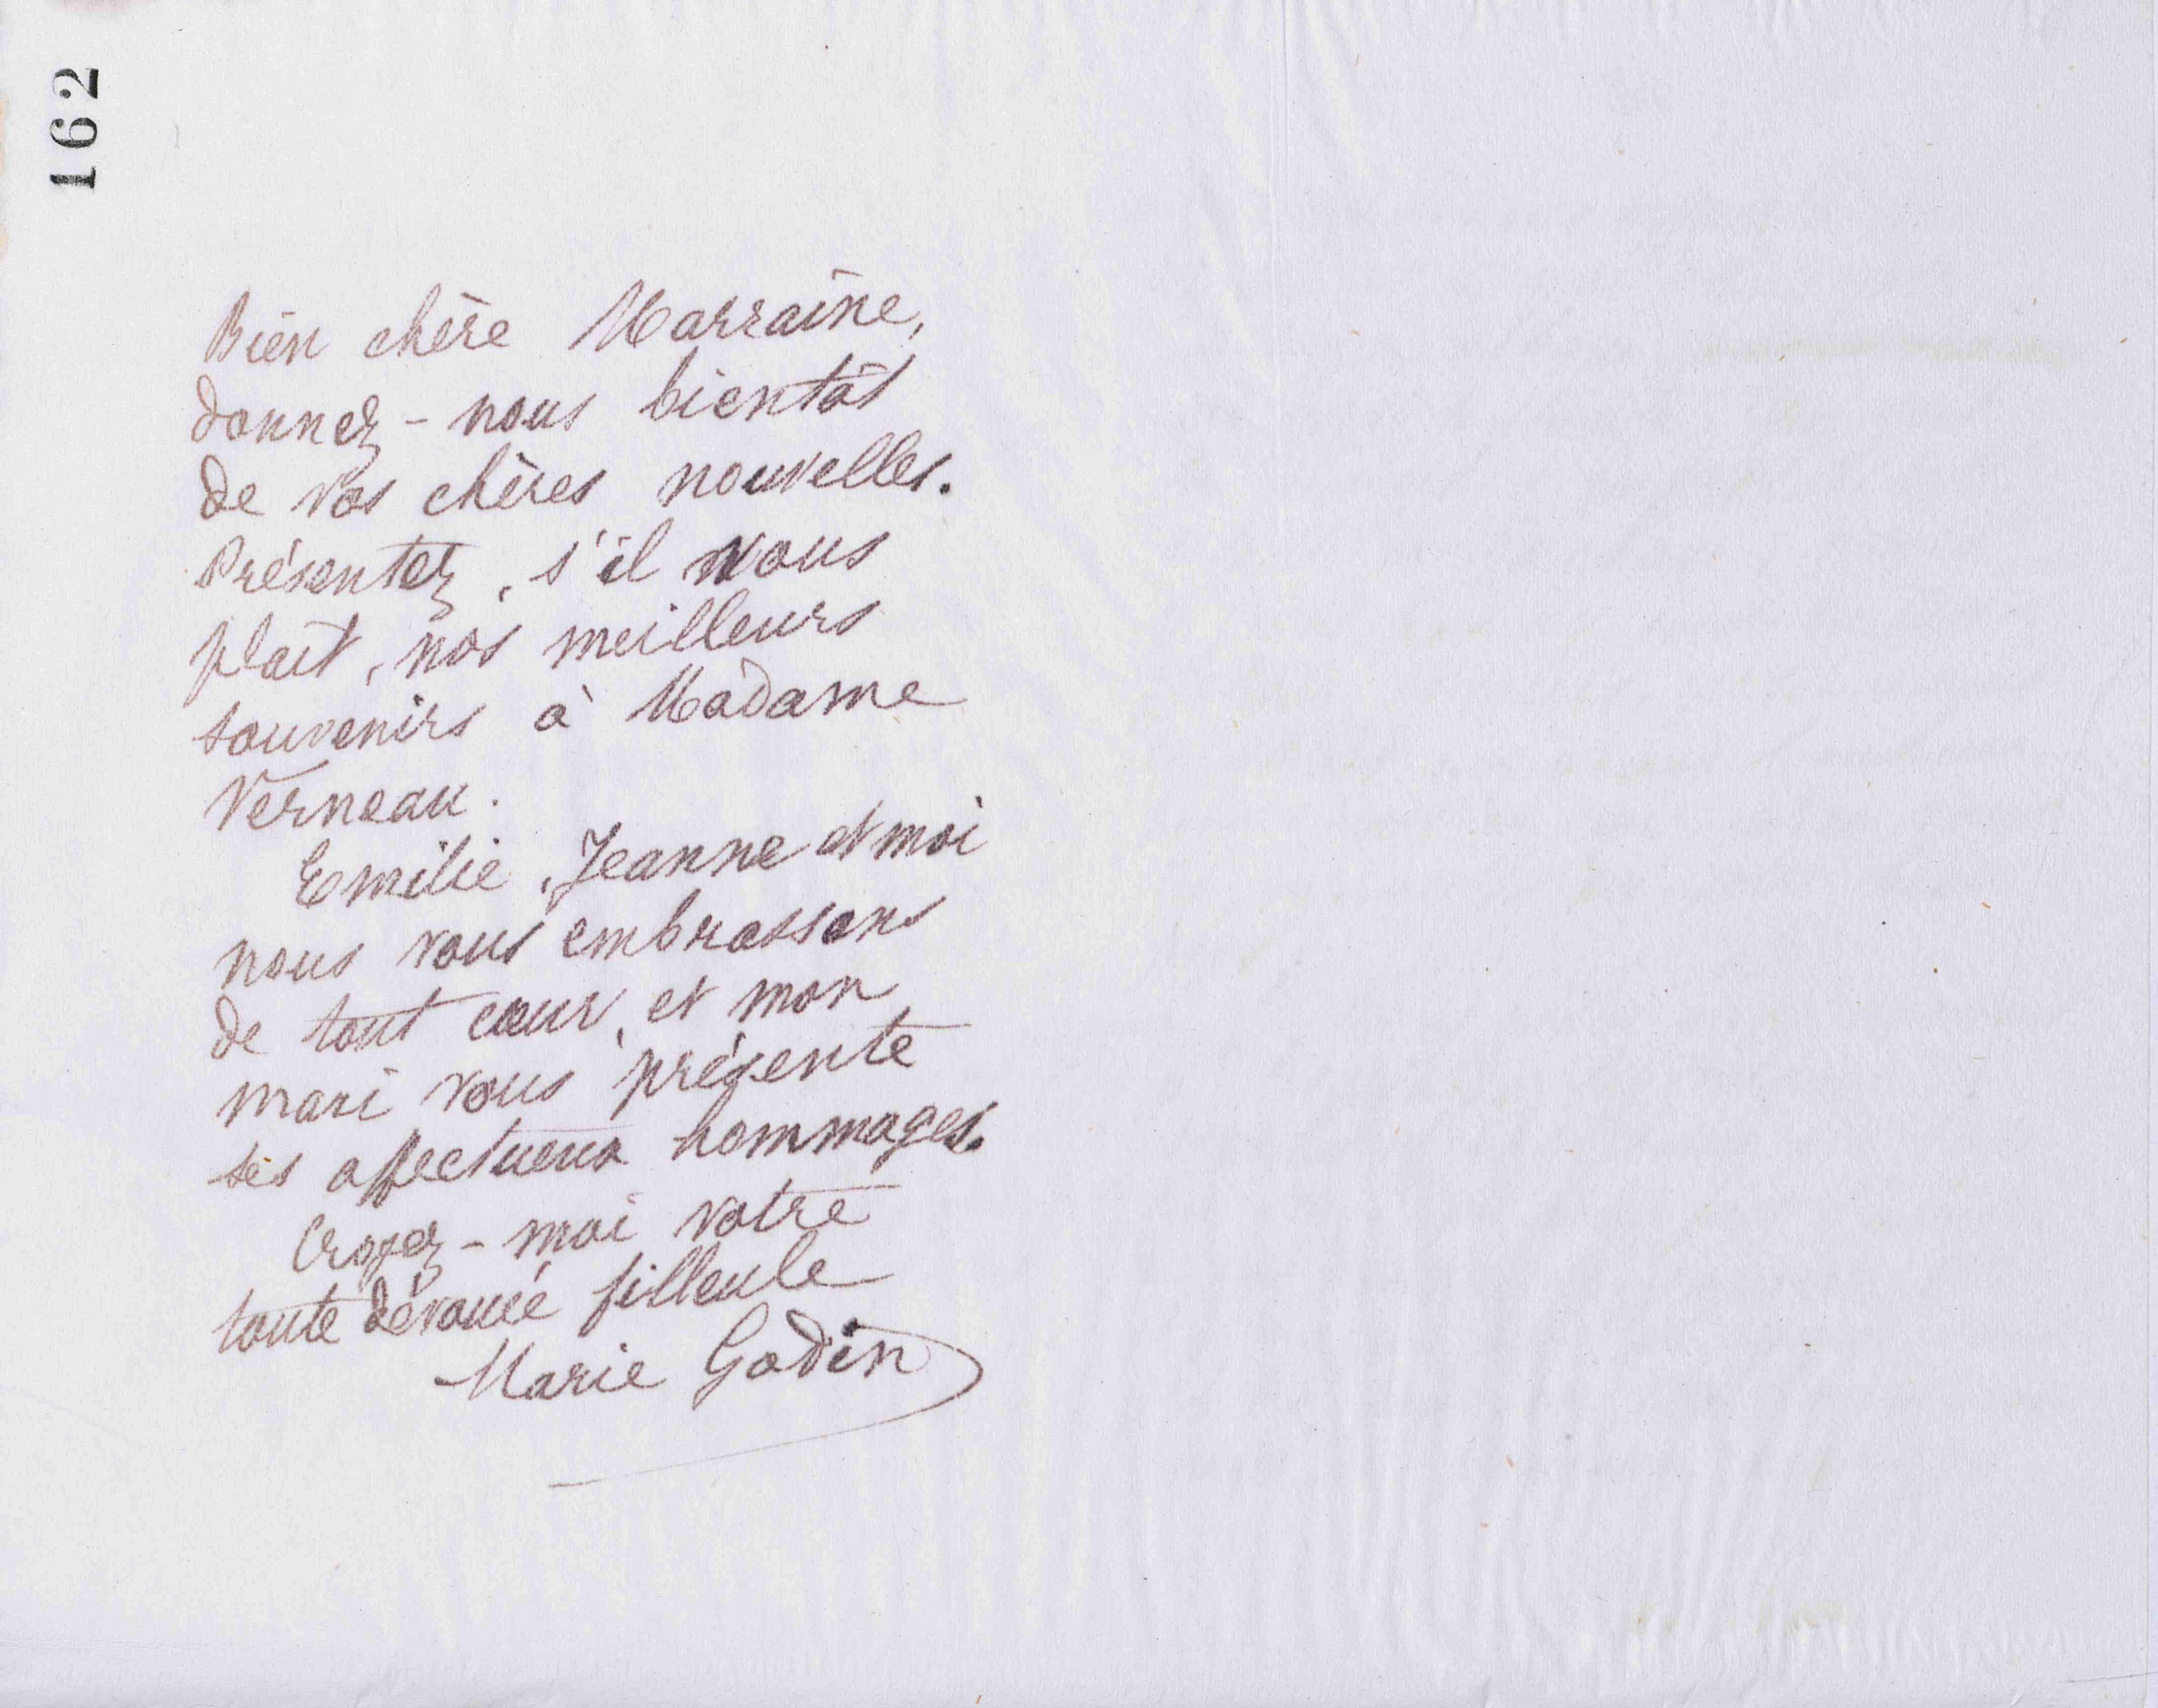 162
Bien chère Marraine,
donnez-nous bientôt
de vos chères nouvelles.
Présentez, s'il vous
plaît, nos meilleurs
souvenirs à Madame
Verneau.
Emilie, Jeanne et moi
nous vous embrassons
de tout cœur, et mon
mari vous présente
ses affectueux hommages.
Croyez-moi votre
toute dévouée filleule
Marie Godin